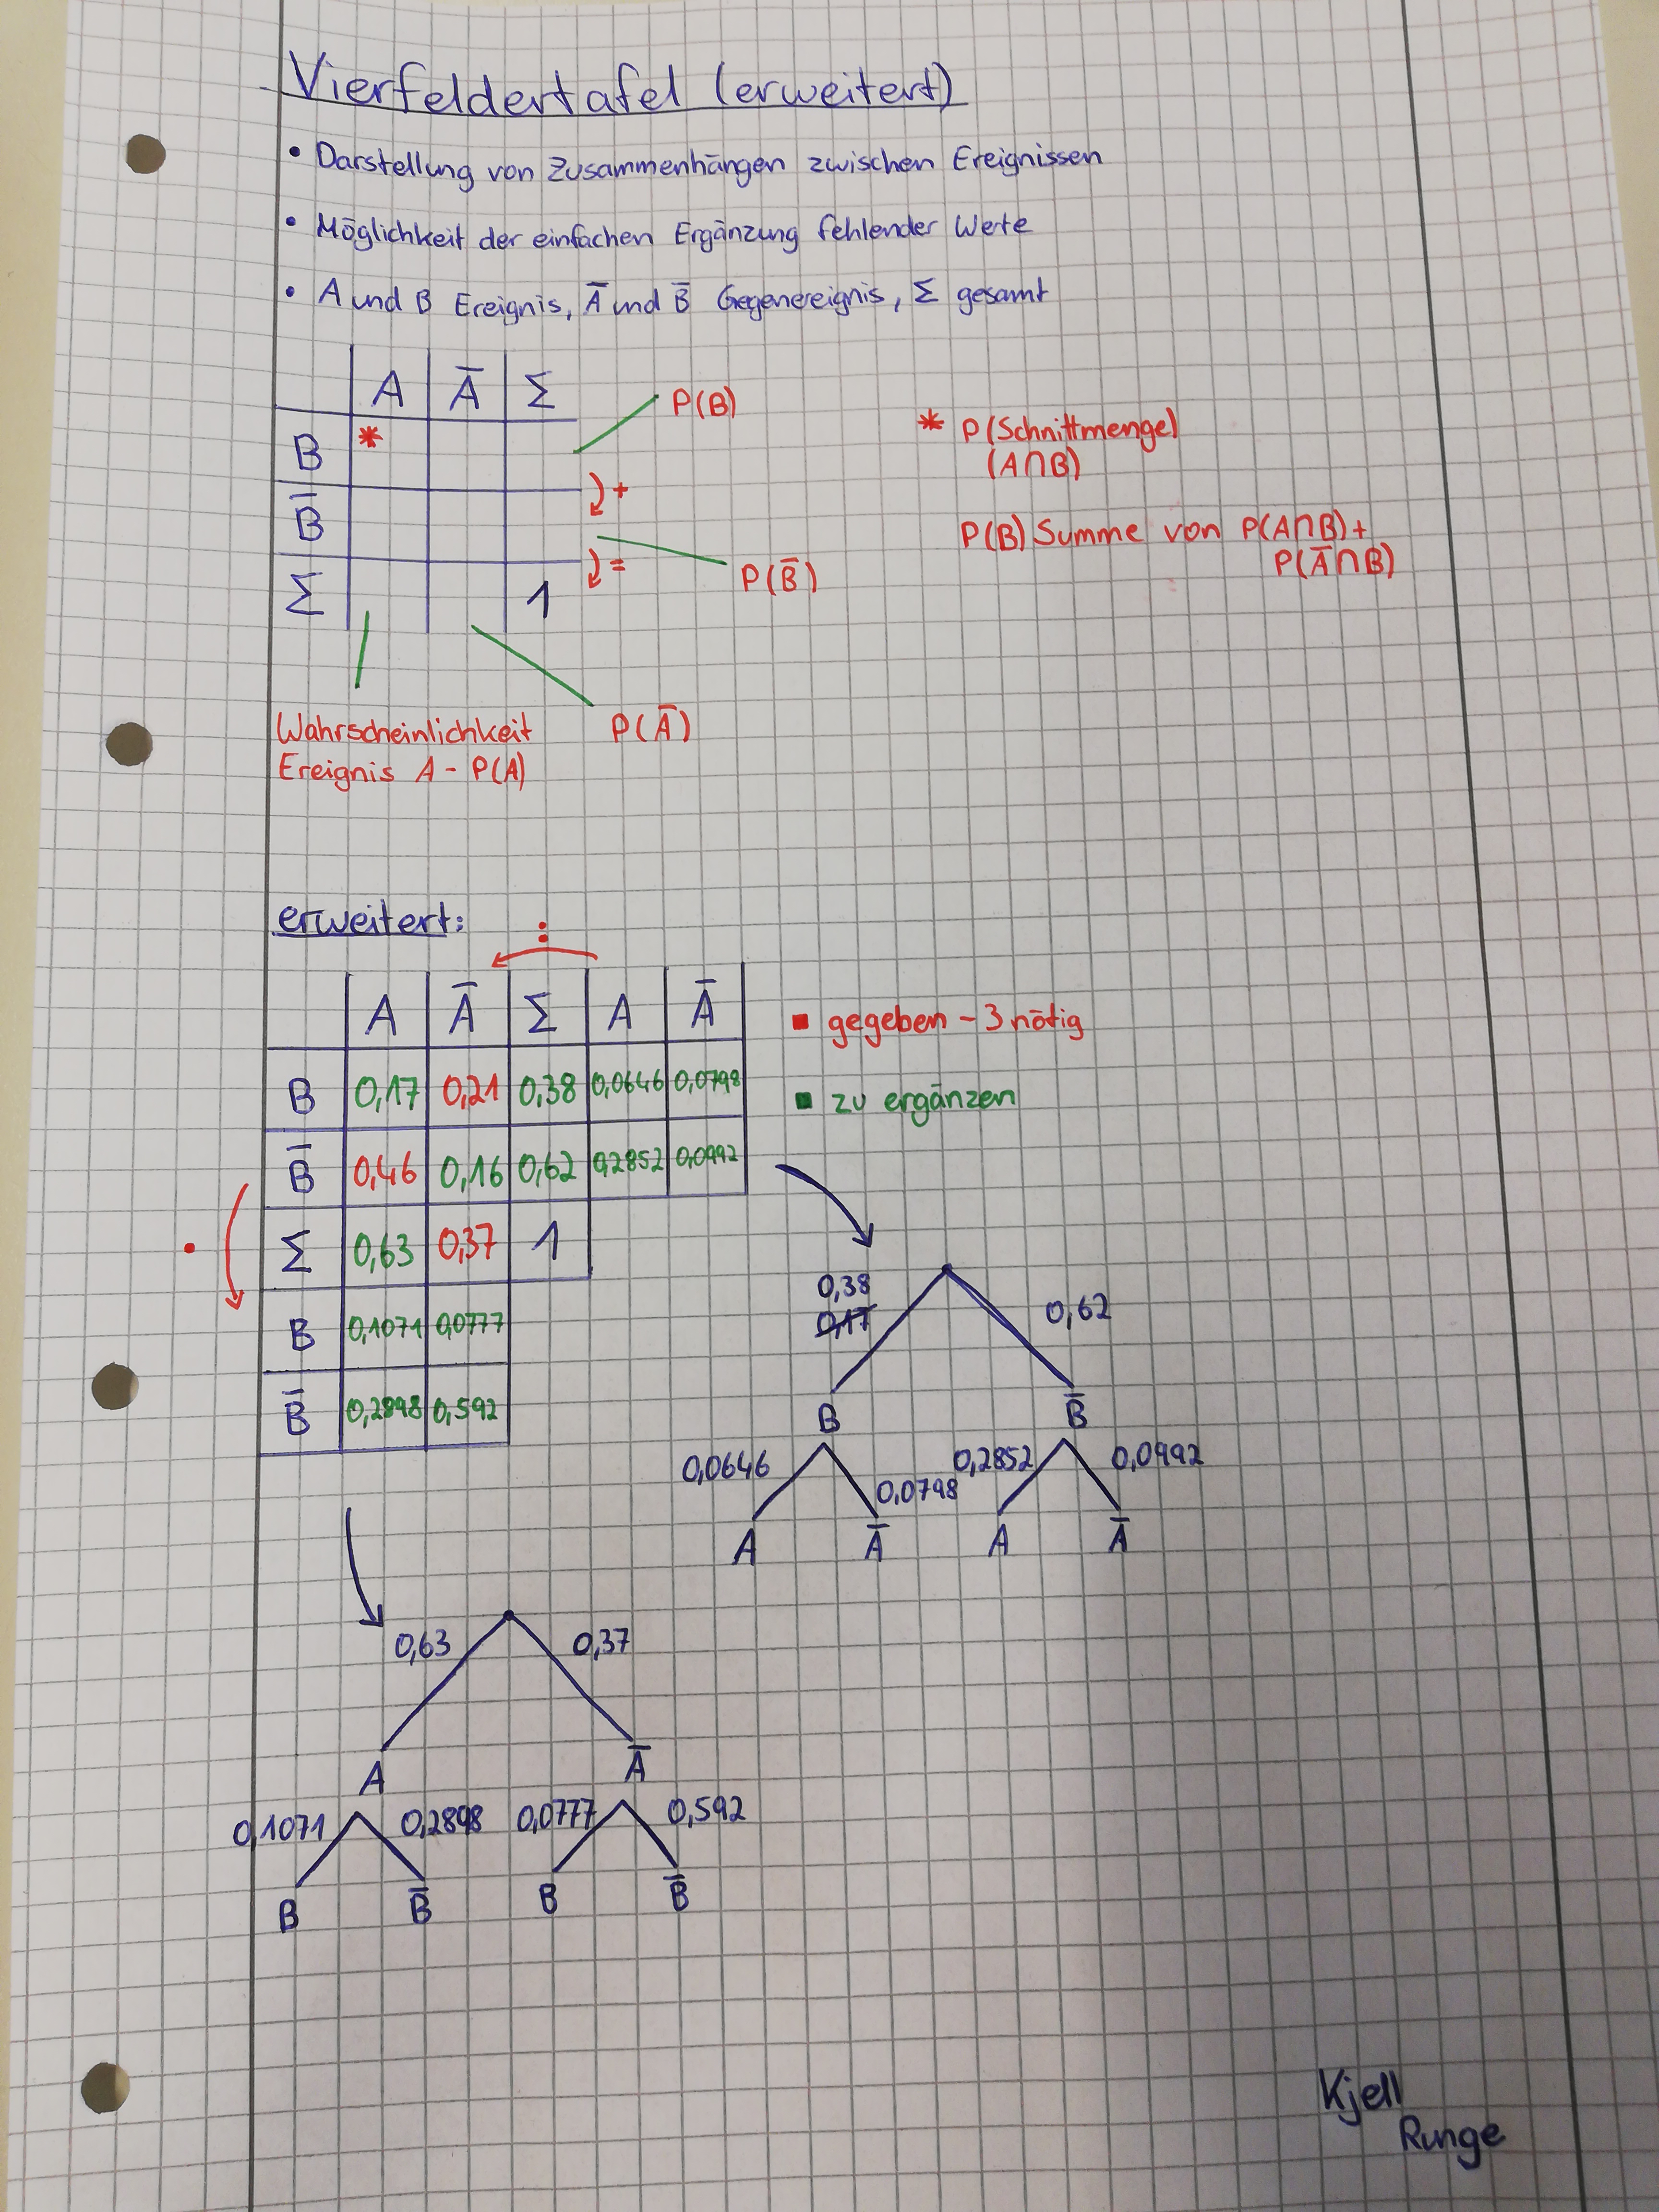 Vierfeldertafel (erweitert)
• Darstellung von Zusammenhängen zwischen Ereignissen
• Möglichkeit der einfachen Ergänzung fehlender Werte
• A und B Ereignis, A̅ und B̅ Gegenereignis, Σ gesamt
A A̅ Σ
B *
B̅
Σ 1
P(B)
+
=
P(B̅)
* P(Schnittmenge)
(A∩B)
P(B) Summe von P(A∩B)+
P(A̅∩B)
Wahrscheinlichkeit
Ereignis A - P(A)
P(A̅)
erweitert:
:
A A̅ Σ A A̅
B 0,17 0,21 0,38 0,0646 0,0798
B̅ 0,46 0,16 0,62 0,2852 0,0992
Σ 0,63 0,37 1
B 0,1071 0,0777
B̅ 0,2898 0,592
•
▪ gegeben - 3 nötig
▪ zu ergänzen
0,38
0,17
0,62
B B̅
0,0646 0,0798 0,2852 0,0992
A A̅ A A̅
0,63 0,37
A A̅
0,1071 0,2898 0,0777 0,592
B B̅ B B̅
Kjell
Runge